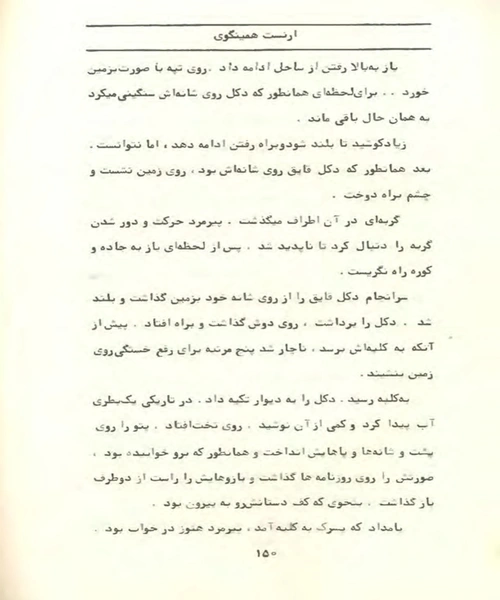 ارنست همینگوی
باز به‌بالا رفتن از ساحل ادامه داد . روی تپه با صورت‌بزمین
خورد . . برای‌لحظه‌ای همانطور که دکل روی شانه‌اش سنگینی‌میکرد
به همان حال باقی ماند .
زیادکوشید تا بلند شودوبراه رفتن ادامه دهد ، اما نتوانست .
بعد همانطور که دکل قایق روی شانه‌اش بود ، روی زمین نشست و
چشم براه دوخت .
گربه‌ای در آن اطراف میگذشت . پیرمرد حرکت و دور شدن
گربه را دنبال کرد تا ناپدید شد . پس از لحظه‌ای باز به جاده و
کوره راه نگریست .
سرانجام دکل قایق را از روی شانه خود بزمین گذاشت و بلند
شد . دکل را برداشت ، روی دوش گذاشت و براه افتاد . پیش از
آنکه به کلبه‌اش برسد ، ناچار شد پنج مرتبه برای رفع خستگی‌روی
زمین بنشیند .
به‌کلبه رسید . دکل را به دیوار تکیه داد . در تاریکی یک‌بطری
آب پیدا کرد و کمی از آن نوشید . روی تخت‌افتاد . پتو را روی
پشت و شانه‌ها و پاهایش انداخت و همانطور که برو خوابیده بود ،
صورتش را روی روزنامه ها گذاشت و بازوهایش را راست از دوطرف
باز گذاشت . بنحوی که کف دستانش‌رو به بیرون بود .
بامداد که پسرک به کلبه آمد ، پیرمرد هنوز در خواب بود .
۱۵۰